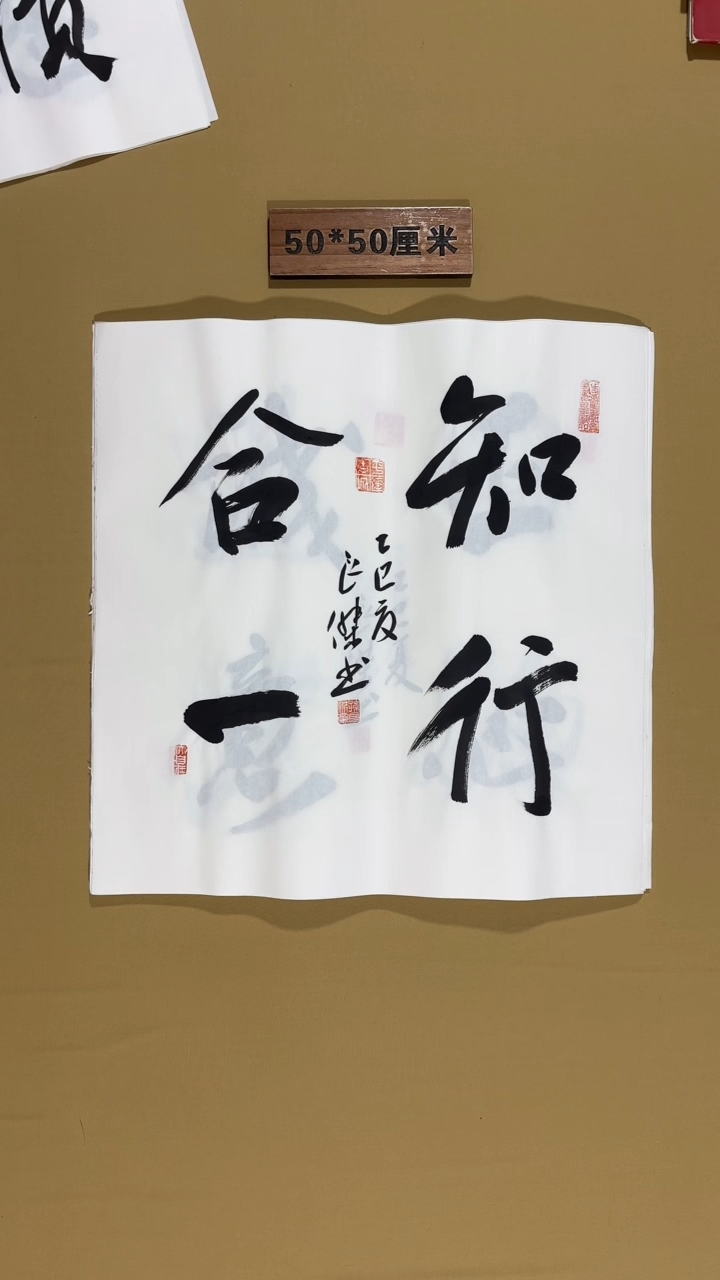 50*50厘米
知行
合一
乙巳夏
正傑书